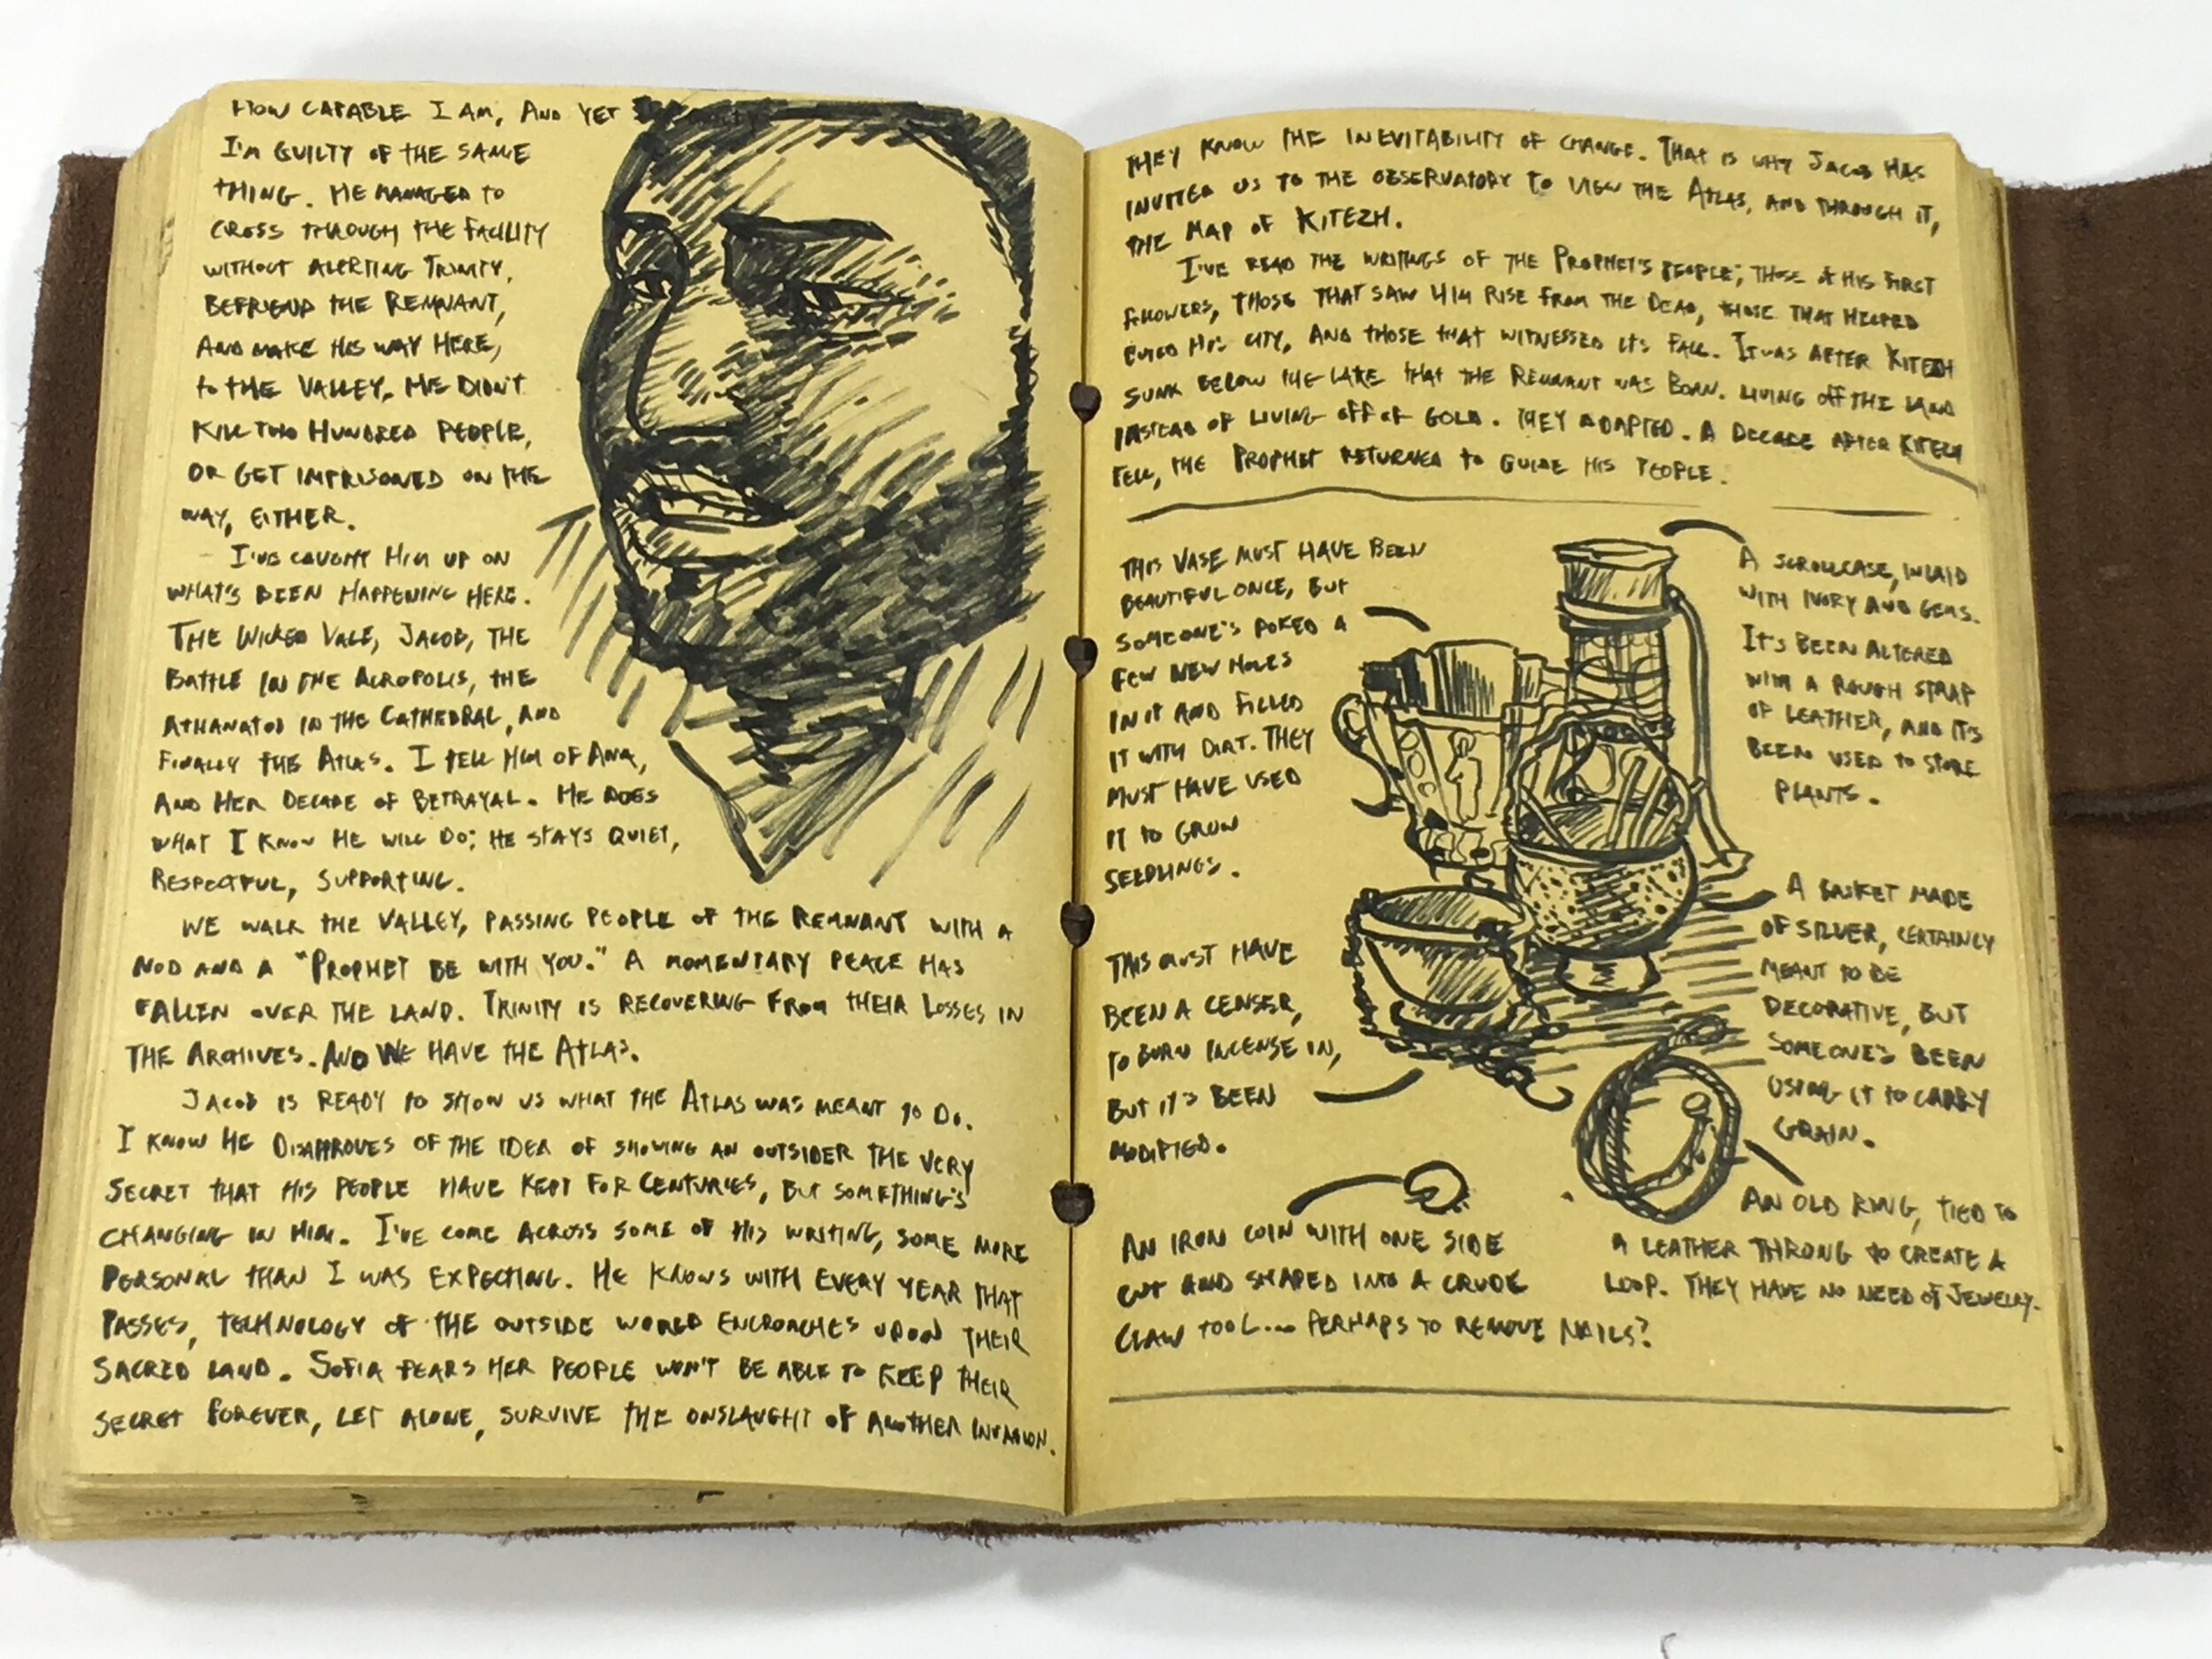 HOW CAPABLE I AM, AND YET
I'M GUILTY OF THE SAME
THING. HE MANAGED TO
CROSS THROUGH THE FACILITY
WITHOUT ALERTING TRINITY,
BEFRIEND THE REMNANT,
AND MAKE HIS WAY HERE,
TO THE VALLEY. HE DIDN'T
KILL TWO HUNDRED PEOPLE,
OR GET IMPRISONED ON THE
WAY, EITHER.
I'VE CAUGHT HIM UP ON
WHAT'S BEEN HAPPENING HERE.
THE WICKED VALE, JACOB, THE
BATTLE IN THE ACROPOLIS, THE
ATHANATOI IN THE CATHEDRAL, AND
FINALLY THE ATLAS. I TELL HIM OF ANA,
AND HER DECADE OF BETRAYAL. HE DOES
WHAT I KNOW HE WILL DO; HE STAYS QUIET,
RESPECTFUL, SUPPORTING.
WE WALK THE VALLEY, PASSING PEOPLE OF THE REMNANT WITH A
NOD AND A "PROPHET BE WITH YOU." A MOMENTARY PEACE HAS
FALLEN OVER THE LAND. TRINITY IS RECOVERING FROM THEIR LOSSES IN
THE ARCHIVES. AND WE HAVE THE ATLAS.
JACOB IS READY TO SHOW US WHAT THE ATLAS WAS MEANT TO DO.
I KNOW HE DISAPPROVES OF THE IDEA OF SHOWING AN OUTSIDER THE VERY
SECRET THAT HIS PEOPLE HAVE KEPT FOR CENTURIES, BUT SOMETHING'S
CHANGING IN HIM. I'VE COME ACROSS SOME OF HIS WRITING, SOME MORE
PERSONAL THAN I WAS EXPECTING. HE KNOWS WITH EVERY YEAR THAT
PASSES, TECHNOLOGY OF THE OUTSIDE WORLD ENCROACHES UPON THEIR
SACRED LAND. SOFIA FEARS HER PEOPLE WON'T BE ABLE TO KEEP THEIR
SECRET FOREVER, LET ALONE, SURVIVE THE ONSLAUGHT OF ANOTHER INVASION.
THEY KNOW THE INEVITABILITY OF CHANGE. THAT IS WHY JACOB HAS
INVITED US TO THE OBSERVATORY TO VIEW THE ATLAS, AND THROUGH IT,
THE MAP OF KITEZH.
I'VE READ THE WRITINGS OF THE PROPHET'S PEOPLE; THOSE OF HIS FIRST
FOLLOWERS, THOSE THAT SAW HIM RISE FROM THE DEAD, THOSE THAT HELPED
BUILD HIS CITY, AND THOSE THAT WITNESSED ITS FALL. IT WAS AFTER KITEZH
SUNK BELOW THE LAKE THAT THE REMNANT WAS BORN. LIVING OFF THE LAND
INSTEAD OF LIVING OFF OF GOLD. THEY ADAPTED. A DECADE AFTER KITEZH
FELL, THE PROPHET RETURNED TO GUIDE HIS PEOPLE.
THIS VASE MUST HAVE BEEN
BEAUTIFUL ONCE, BUT
SOMEONE'S POKED A
FEW NEW HOLES
IN IT AND FILLED
IT WITH DIRT. THEY
MUST HAVE USED
IT TO GROW
SEEDLINGS.
A SCROLLCASE, INLAID
WITH IVORY AND GEMS.
IT'S BEEN ALTERED
WITH A ROUGH STRAP
OF LEATHER, AND IT'S
BEEN USED TO STORE
PLANTS.
THIS MUST HAVE
BEEN A CENSER,
TO BURN INCENSE IN,
BUT IT'S BEEN
MODIFIED.
A BASKET MADE
OF SILVER, CERTAINLY
MEANT TO BE
DECORATIVE, BUT
SOMEONE'S BEEN
USING IT TO CARRY
GRAIN.
AN IRON COIN WITH ONE SIDE
CUT AND SHAPED INTO A CRUDE
CLAW TOOL... PERHAPS TO REMOVE NAILS?
AN OLD RING, TIED TO
A LEATHER THRONG TO CREATE A
LOOP. THEY HAVE NO NEED OF JEWELRY.